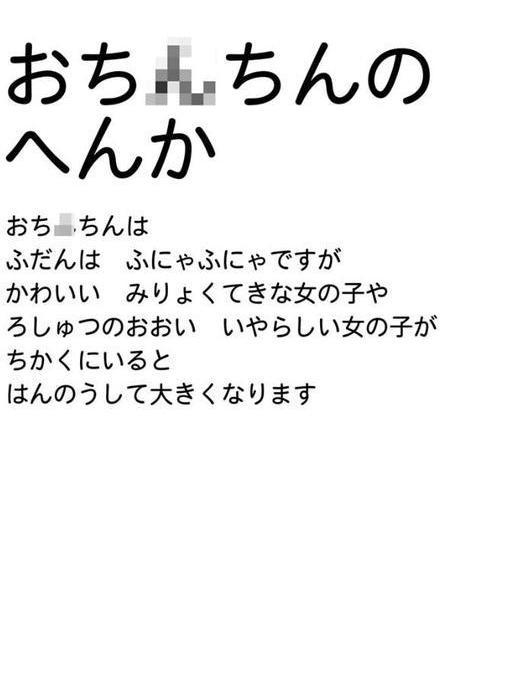 おちんちんの
へんか
おち ちんは
ふだんは　ふにゃふにゃですが
かわいい　みりょくてきな女の子や
ろしゅつのおおい　いやらしい女の子が
ちかくにいると
はんのうして大きくなります